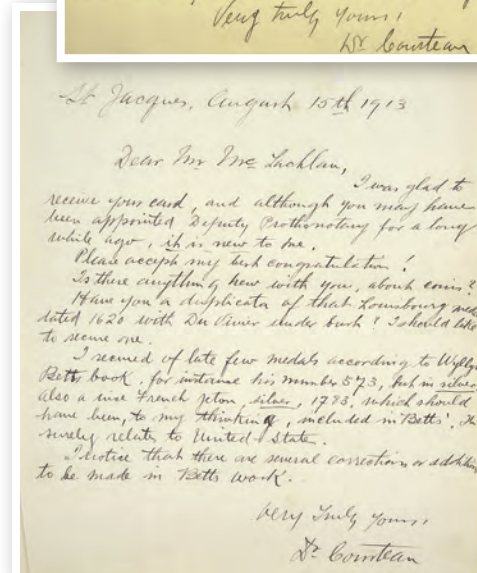 Very truly yours,
Dr Courteau
St Jacques, August 15th 1913
Dear Mr McLachlan,
I was glad to
receive your card, and although you may have
been appointed Deputy Prothonotary for a long
while ago, it is new to me.
Please accept my best congratulation!
Is there anything new with you, about coins?
Have you a duplicata of that Louisbourg
dated 1620 with Du Vivier under bust? I should like
to secure one.
I secured of late few medals according to Wyllys
Betts book, for instance his number 573, but in silver
also a nice French jeton, silver, 1783, which should
have been, to my thinking, included in Betts'.
surely relates to United State.
I notice that there are several corrections or
to be made in Betts work.
Very Truly yours,
Dr Courteau